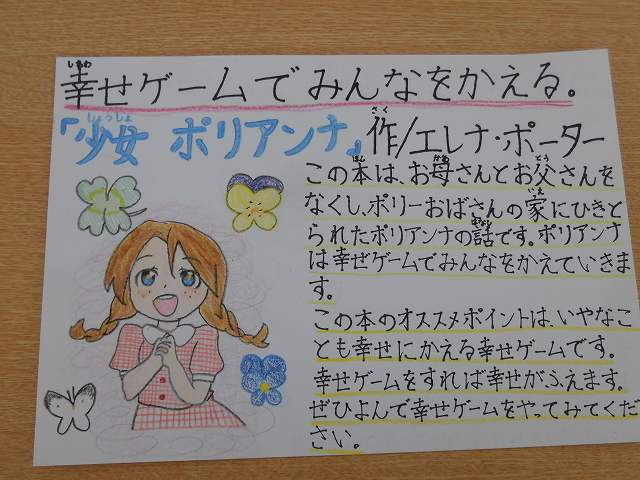 幸せゲームでみんなをかえる。
『少女 ポリアンナ』作/エレナ・ポーター
この本は、お母さんとお父さんを
なくし、ポリーおばさんの家にひきと
られたポリアンナの話です。ポリアンナ
は幸せゲームでみんなをかえていきま
す。
この本のオススメポイントは、いやなこ
とも幸せにかえる幸せゲームです。
幸せゲームをすれば幸せがふえます。
ぜひよんで幸せゲームをやってみてくだ
さい。